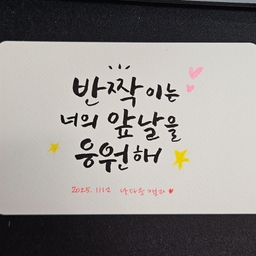 반짝이는
너의 앞날을
응원해
2025. 11.12 나다운 캘리